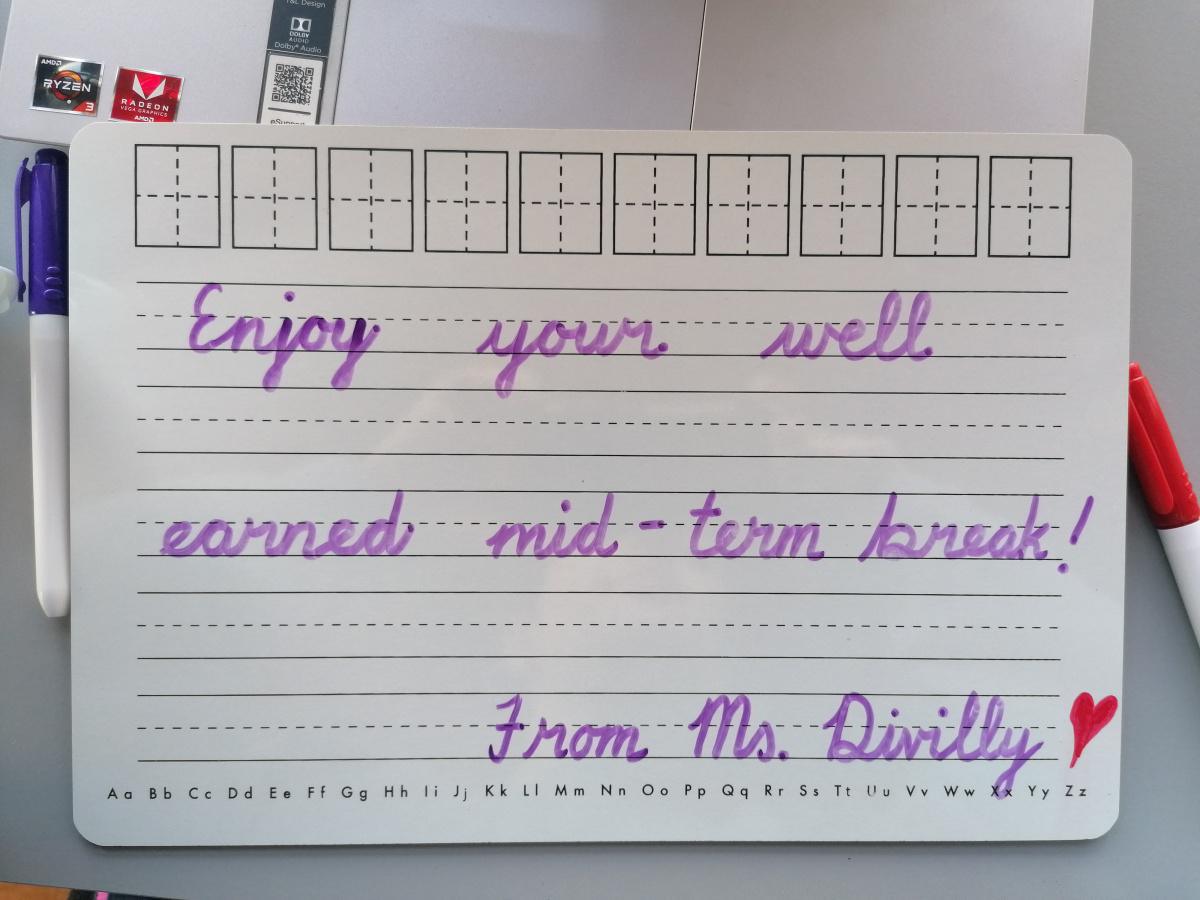 T&L Design
DOLBY
AUDIO
Dolby® Audio
AMD
RYZEN
3
RADEON
VEGA GRAPHICS
AMD
eSupport
Enjoy your well
earned mid-term break!
From Ms. Divilly
Aa Bb Cc Dd Ee Ff Gg Hh Ii Jj Kk Ll Mm Nn Oo Pp Qq Rr Ss Tt Uu Vv Ww Xx Yy Zz